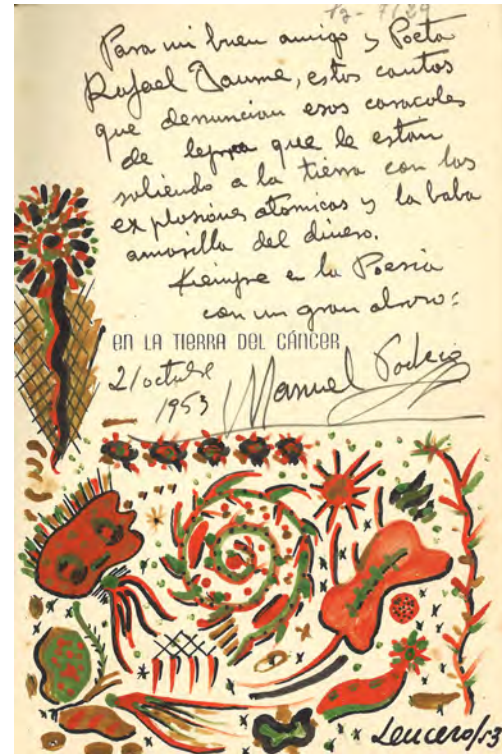 Para mi buen amigo y Poeta
Rafael Jaume, estos cantos
que denuncian esos caracoles
de lepra que le estan
saliendo a la tierra con las
explosiones atomicas y la baba
amarilla del dinero.
Siempre en la Poesia
con un gran abrazo:
en LA TIERRA DEL CÁNCER
21 octubre
1953
Manuel